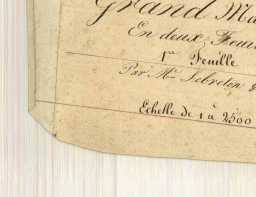 Grand Ma
En deux Feui
1re Feuille
Par Mr. Lebreton
Echelle de 1 à 2500